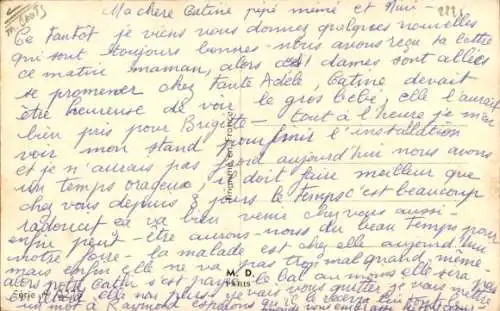 Ma chère Catine pépé mémé et Nini -
Ce tantôt je viens vous donner quelques nouvelles
qui sont toujours bonnes - nous avons reçu ta lettre
ce matin maman, alors ces dames sont allées
se promener chez Tante Adèle, Catine devait
être heureuse de voir le gros bébé, elle l'aurait
bien pris pour Brigitte - tout à l'heure je m'en
voir mon stand pour finir l'installation
et je n'aurais pas froid aujourd'hui nous avons
un temps orageux, il doit faire meilleur que
chez vous depuis 3 jours le temps s'est beaucoup
radouci ça va bien venir chez vous aussi -
enfin peut-être aurons-nous du beau temps pour
notre foire - la malade est chez elle aujourd'hui
mais enfin elle ne va pas trop mal quand même -
alors petit Catin s'est payé le bal au moins elle sera
elle non plus - je vais vous quitter je vais mettre
un mot à Raymond espérons qu'il le
vous embrasse
M. D.
PARIS
Imprimé en France